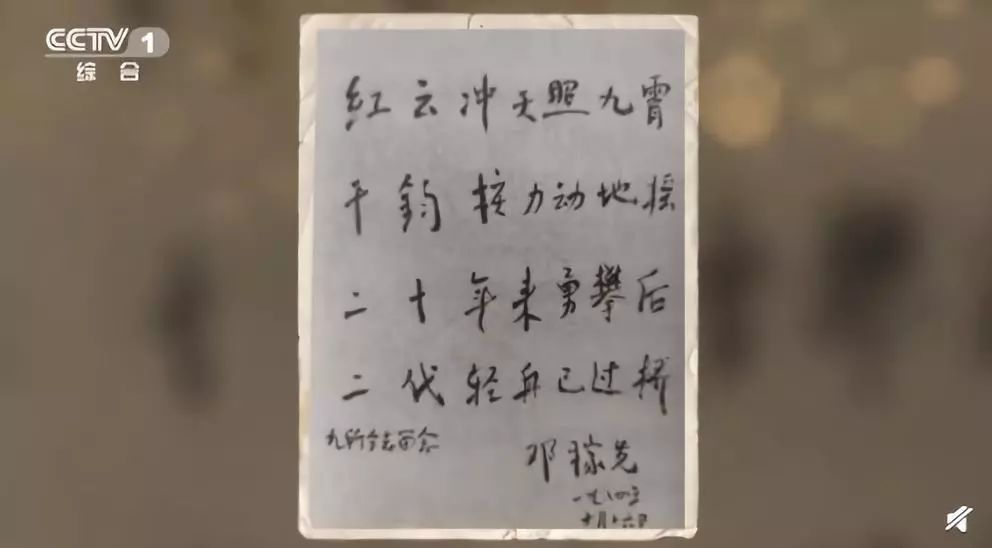 CCTV 1
综合
紅云冲天照九霄
千鈞核力动地摇
二十年来勇攀后
二代轻舟已过桥
九所
邓稼先
一九八四年
十月十六日